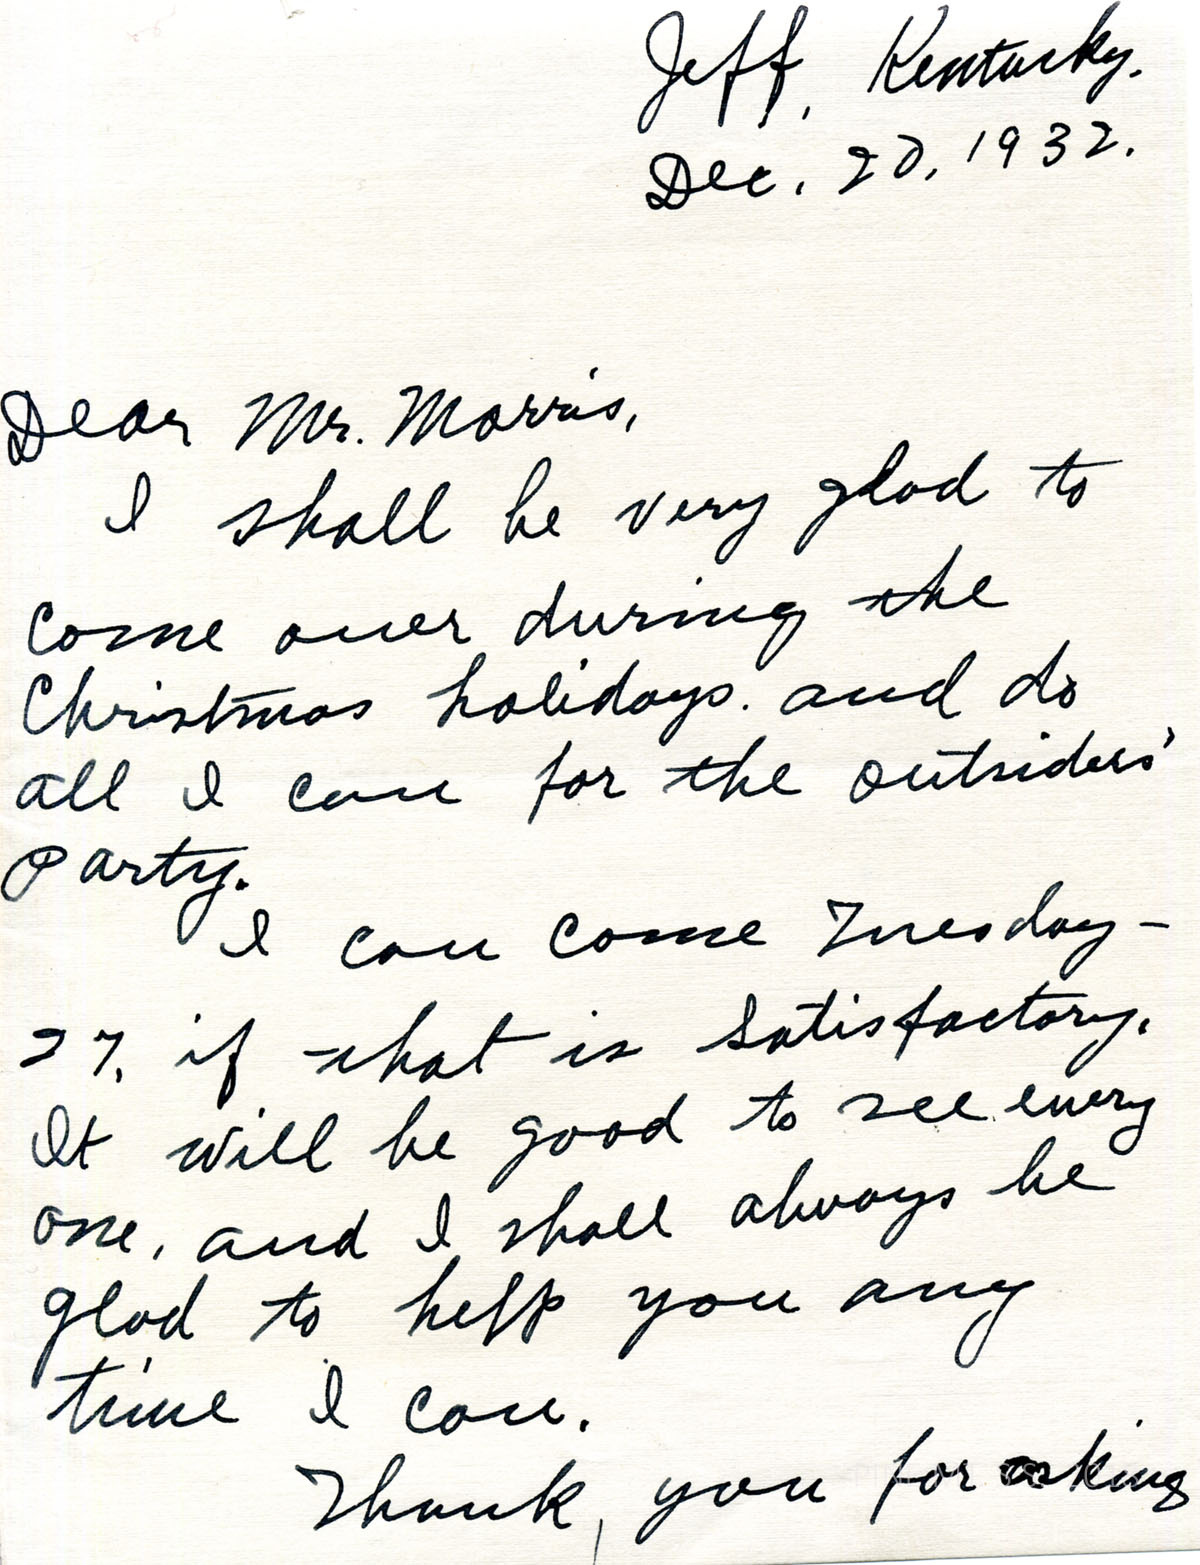 Jeff, Kentucky.
Dec. 20, 1932.
Dear Mr. Morris,
I shall be very glad to
come over during the
Christmas holidays. and do
all I can for the outsiders'
Party.
I can come Tuesday-
27, if that is satisfactory.
It will be good to see every
one, and I shall always be
glad to help you any
time I can.
Thank, you for asking